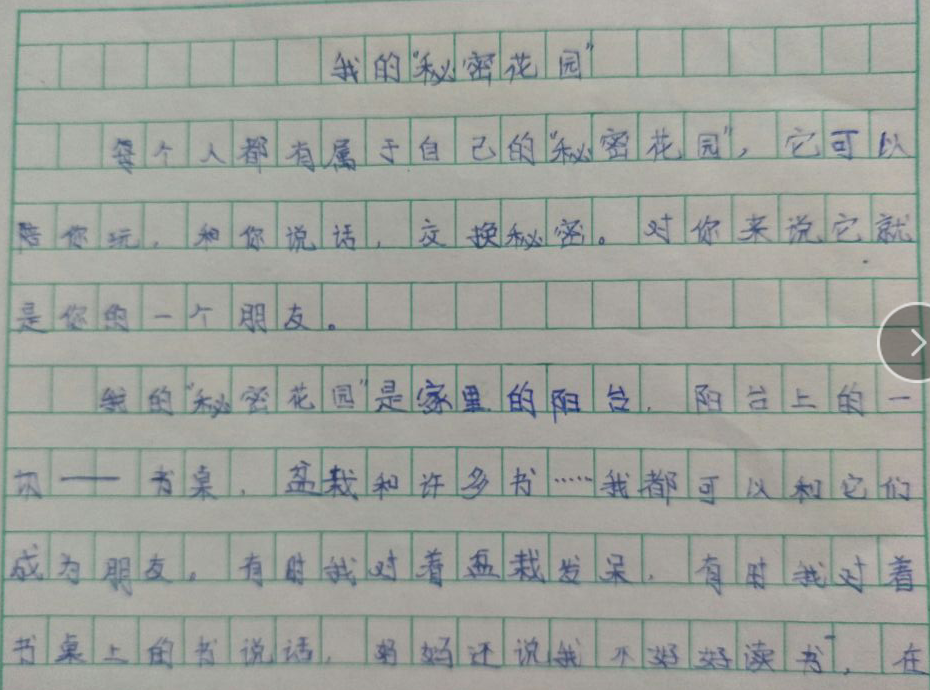 我的“秘密花园”
每个人都有属于自己的“秘密花园”，它可以
陪你玩，和你说话，交换秘密。对你来说它就
是你的一个朋友。
我的“秘密花园”是家里的阳台，阳台上的一
切——书桌，盆栽和许多书……我都可以和它们
成为朋友。有时我对着盆栽发呆，有时我对着
书桌上的书说话，妈妈还说我不好好读书”，在